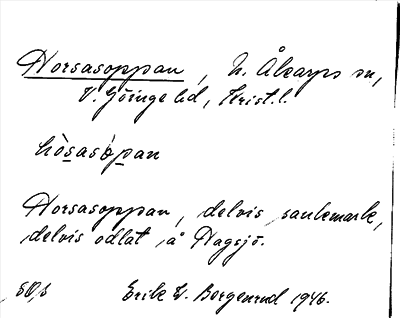 Horsasoppan, N. Åkarps sn,
V. Göinge hd, Krist. l.
hòsasópan
Horsasoppan, delvis sankmark,
delvis odlat å Hagsjö.
Erik W. Borgenrud 1946.